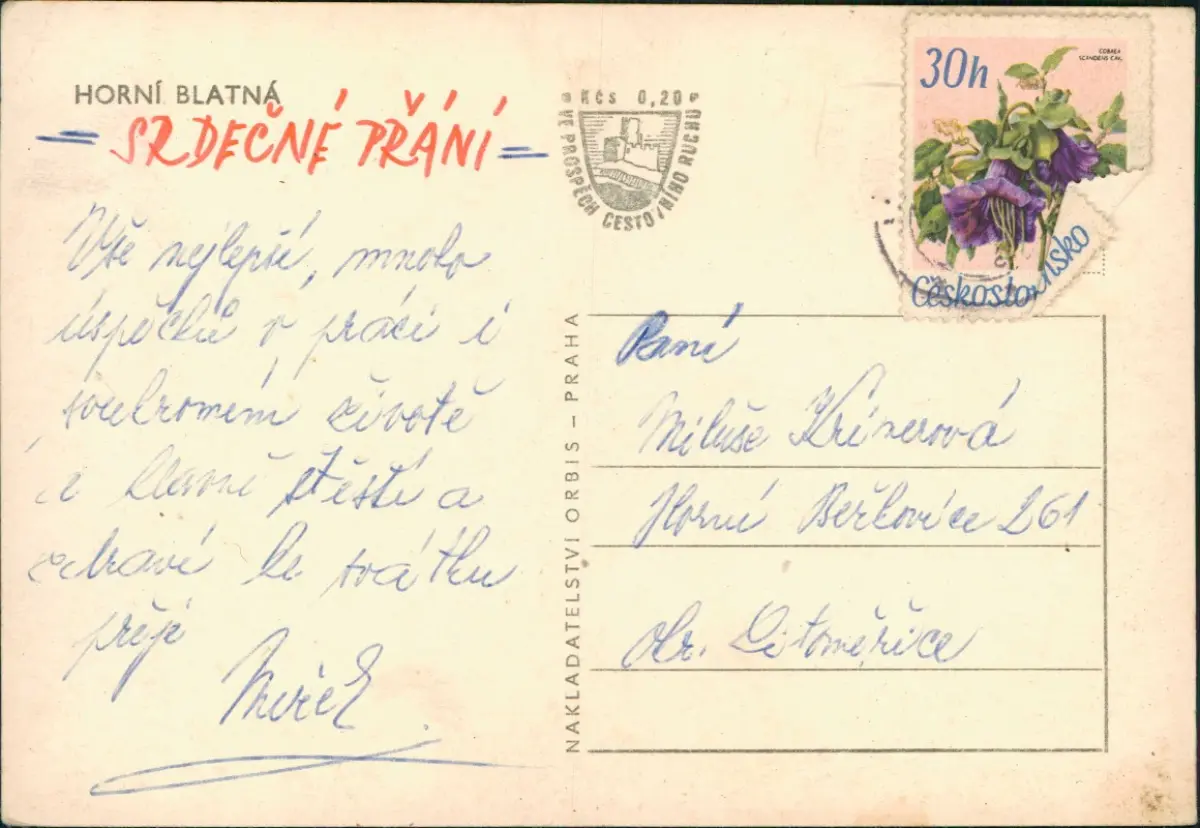 HORNÍ BLATNÁ
= SRDEČNÉ PŘÁNÍ =
Vše nejlepší, mnoho
úspěchů v práci i
soukromém životě
a hlavně štěstí a
zdraví ke svátku
přeje
Mireček
Kčs 0,20
VE PROSPĚCH CESTOVNÍHO RUCHU
NAKLADATELSTVÍ ORBIS – PRAHA
30h
COBAEA
SCANDENS CAV.
Československo
Paní
Miluše Krinerová
Horní Beřkovice 261
okr. Litoměřice